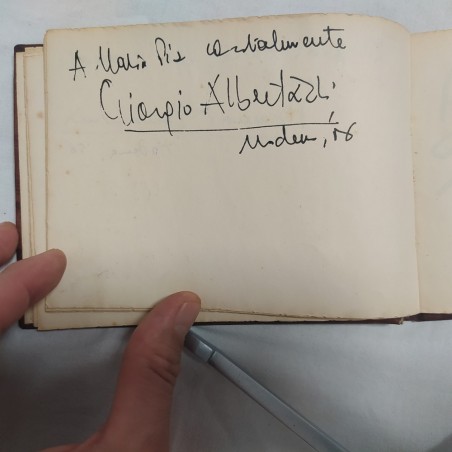 A Maria Pia cordialmente
Giorgio Albertazzi
Modena, 56